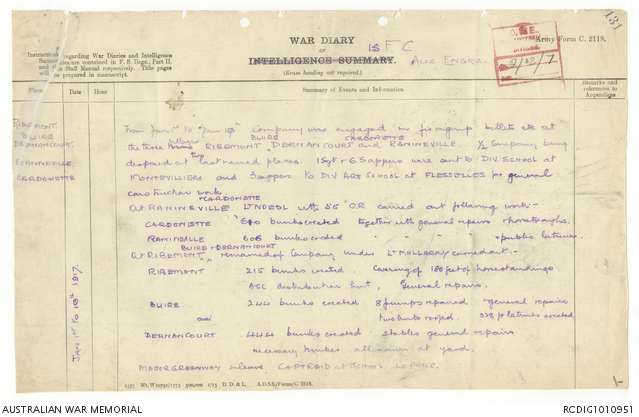 131
WAR DIARY
or
INTELLIGENCE SUMMARY.
(Erase heading not required.)
1st F.C.
Aus Engrs.
Army Form C. 2118.
Instructions regarding War Diaries and Intelligence
Summaries are contained in F. S. Regs., Part II.
and the Staff Manual respectively. Title pages
will be prepared in manuscript.
Place
Date
Hour
Summary of Events and Information
Remarks and
references to
Appendices
RIBEMONT
BUIRE
DERNANCOURT
CARDONETTE
JAN 1st TO 18th 1917.
From Jan 1st to Jan 18th Company was engaged in fixing up billets etc at
BUIRE CARDONETTE
the three villages RIBEMONT DERNANCOURT and RANINEVILLE. ½ Company being
at last named places. 1 Sgt + 6 Sappers were sent to DIV SCHOOL at
MONTEVILLIERS and Sappers to DIV ART SCHOOL at FLESSELLES for general
construction work
+ CARDONETTE
At RANINEVILLE Lt NOEDL with 55 O.R. carried out following work:-
CARDONETTE 680 bunks erected together with general repairs
608 bunks erected " " " " + public latrines
BUIRE + DERNANCOURT
At RIBEMONT remainder of Company under Lt
RIBEMONT 215 bunks erected. Clearing of 180 feet of horsestandings
ASC distribution hut, General repairs.
BUIRE 244 bunks erected 8 pumps repaired general repairs
and two huts roofed. latrines erected
DERNANCOURT 444 bunks erected stables general repairs
necessary at yard.
MAJOR GREENWAY on leave CAPT REID at SCHOOL
1577 Wt. W10791/1773 500,000 1/15 D. D. & L. A.D.S.S./Forms/C. 2118.
AUSTRALIAN WAR MEMORIAL
RCDIG1010951